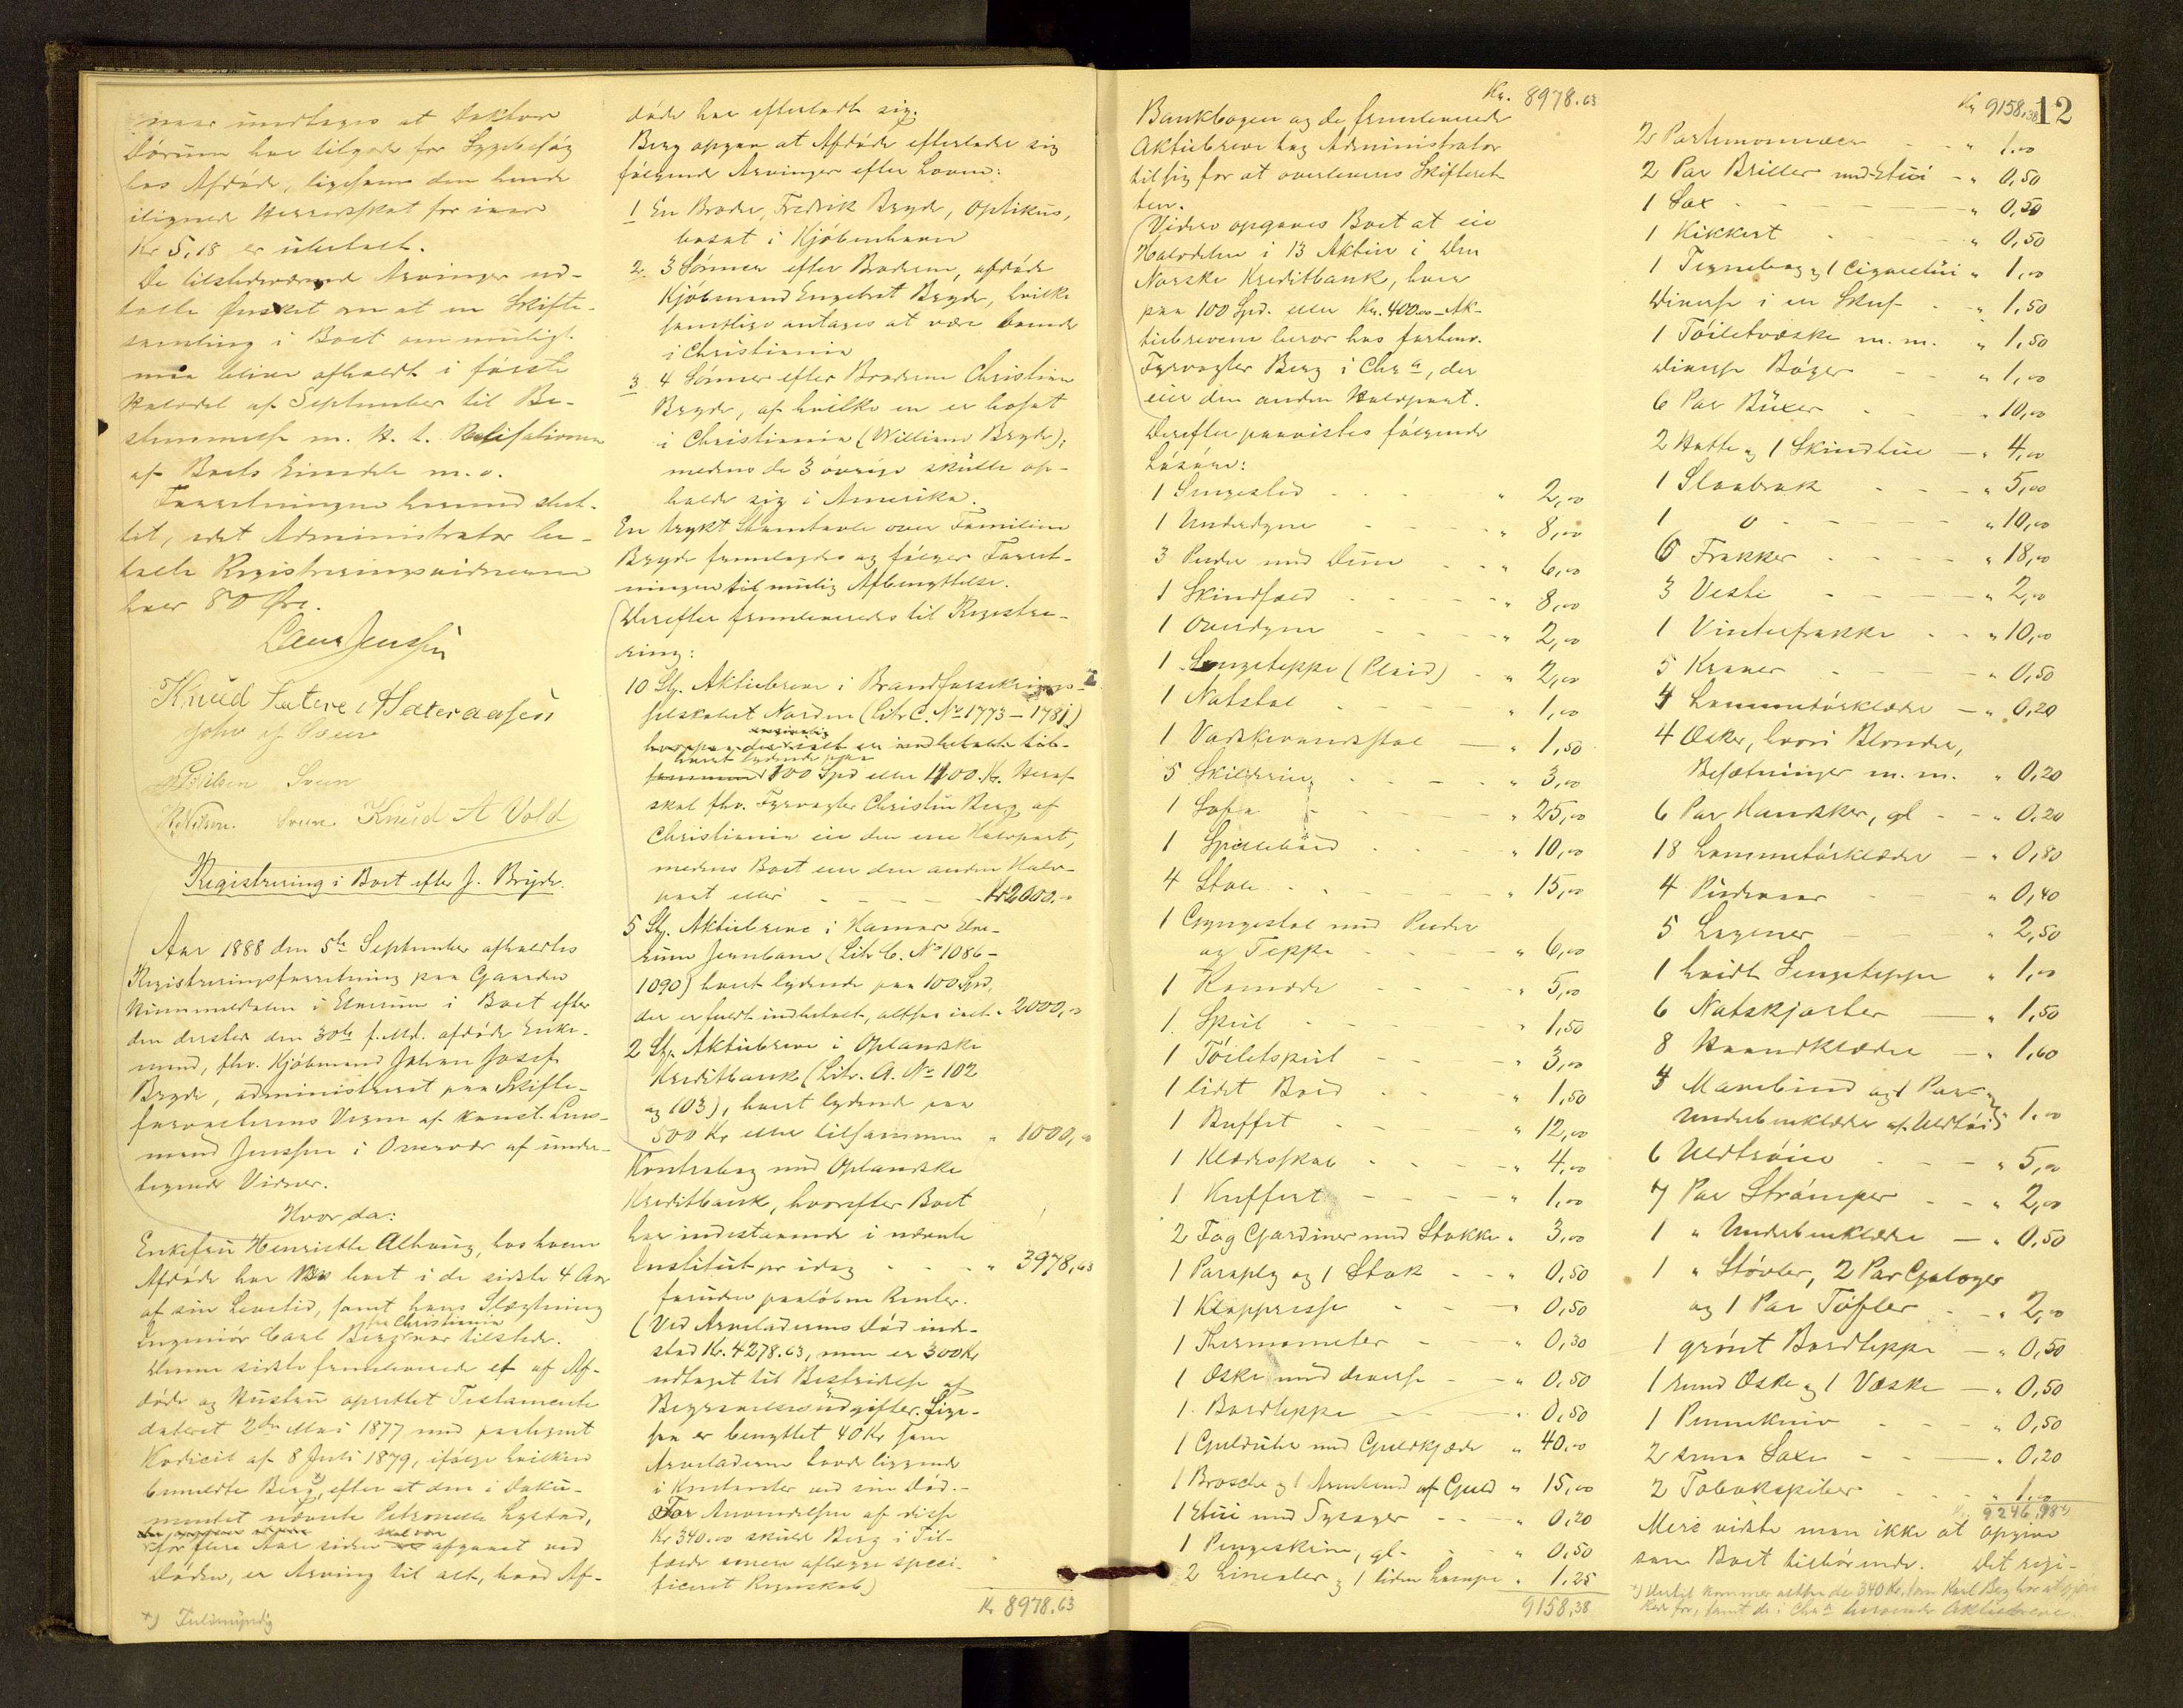 maa undtages at Doktor
Dørum har tilgode for Sygebesøg
hos Afdøde, ligesom den hende
ilignede Herredsskat for iaar
Kr 5,18 er ubetalt.
De tilstedeværende Arvinger ud-
talte Ønsket om at en Skifte-
samling i Boet om muligt
maa blive afholdt i første
Halvdel af September til Be-
stemmelse m. H. t. Realisationen
af Boets Eiendele m. v.
Forretningen hermed slut-
tet, idet Administrator be-
talte Registreringsvidnerne
hver 80 Øre.
Laur Jenssen
Knud Sætere
John
Nilsen Sveen
Sveen Knud A Vold
Registrering i Boet efter J. Bryde.
Aar 1888 den 5te September afholdtes
Registreringsforretning paa Gaarden
i Elverum i Boet efter
den dersteds den 30te f. Md. afdøde Enke-
mand, fhv. Kjøbmand Johan Josef
Bryde, administreret paa Skifte-
forvalterens Vegne af konst. Lens-
mand Jenssen i Overvær af under-
tegnede Vidner.
Hvor da:
Enkefru Henriette Alhaug, hos hvem
Afdøde har boet i de sidste 4 Aar
af sin Levetid, samt hans Slægtning
fra Christiania
Ingeniør Carl Berg var tilstede.
Denne sidste fremleverede et af Af-
døde og Hustru oprettet Testamente
dateret 2den Mai 1877 med paategnet
Kodicil af 8 Juli 1879, ifølge hvilket
bemeldte Berg x), efter at den i Doku-
mentet nævnte Petronelle Lystad,
skal være
for flere Aar siden afgaaet ved
Døden, er Arving til alt, hvad Af-
x) Fuldmyndig
døde har efterladt sig.
Berg opgav at Afdøde efterlader sig
følgende Arvinger efter Loven:
1 En Broder, Fredrik Bryde, Optikus,
bosat i Kjøbenhavn
2. 3 Sønner efter Broderen, afdøde
Kjøbmand Engebret Bryde, hvilke
samtlige antages at være boende
i Christiania
3 4 Sønner efter Broderen Christian
Bryde, af hvilke en er bosat
i Christiania (William Bryde),
medens de 3 øvrige skulle op-
holde sig i Amerika.
En trykt Stamtavle over Familien
Bryde fremlagdes og følger Forret-
ningen til mulig Afbenyttelse.
Derefter fremleveredes til Registre-
ring:
10 St. Aktiebreve i Brandforsikrings-
selskabet Norden (Litr C. No 1773 – 1781)
hvert lydende paa
100 Spd eller 400 Kr. Heraf
skal fhv. Fyrvogter Christian Berg af
Christiania eie den ene Halvpart,
medens Boet eier den anden Halv-
part eller - - - - - Kr 2000.00
5 St. Aktiebreve i Hamar Elve-
rum Jernbane (Litr C. No 1086 –
1090) hvert lydende paa 100 Spd,
der er fuldt indbetalt, altsaa ialt " 2000,00
2 St. Aktiebreve i Oplandske
Kreditbank (Litr. A. No 102
og 103), hvert lydende paa
500 Kr eller tilsammen " 1000,00
Kontrabog med Oplandske
Kreditbank, hvorefter Boet
har indestaaende i nævnte
Institut pr idag - - - " 3978,63
foruden paaløbne Renter.
(Ved Arveladerens Død inde-
stod Kr. 4278.63, men er 300 Kr
udtaget til Bestridelse af
Begravelsesudgifter. Lige-
saa er benyttet 40 Kr som
Arveladeren havde liggende
i Kontanter ved sin Død. –
For Anvendelsen af disse
Kr 340.00 skulde Berg i Til-
fælde senere aflægge speci-
ficeret Regnskab)
Kr 8978.63
Kr. 8978.63
Bankbogen og de fremleverede
Aktiebreve tog Administrator
til sig for at overleveres Skifteret-
ten.
Videre opgaves Boet at eie
Halvdelen i 13 Aktier i Den
Norske Kreditbank, hver
paa 100 Spd. eller Kr. 400.00 – Ak-
tiebrevene beror hos forhenv.
Fyrvogter Berg i Chra, der
eier den anden Halvpart.
Derefter paavistes følgende
Løsøre:
1 Sengested - - - " 2,00
1 Underdyne - - - " 8,00
3 Puder med Dun - - " 6,00
1 Skindfæld - - - " 8,00
1 Overdyne - - - " 2,00
1 Sengeteppe (Plaid) - " 2,00
1 Natstol - - - " 1,00
1 Vaskevandsstol — " 1,50
5 Skilderier - - - " 3,00
1 Sofa - - - " 25,00
1 Spillebord - - - " 10,00
4 Stole - - - " 15,00
1 Gyngestol med Puder
og Teppe - - - " 6,00
1 Komode - - - " 5,00
1 Speil - - - " 1,50
1 Töiletspeil - - - " 3,00
1 lidet Bord - - - " 1,50
1 Buffet - - - " 12,00
1 Klædesskab - - - " 4,00
1 Kuffert - - - " 1,00
2 Fag Gardiner med Stokke " 3,00
1 Paraply og 1 Stok - - " 0,50
1 - - " 0,50
1 Thermometer - - " 0,30
1 Æske med diverse - - " 0,50
1 Bordteppe - - - " 0,50
1 Gulduhr med Guldkjæde " 40,00
1 Brosche og 1 Armbaand af Guld " 15,00
1 Etui med Sysager - - " 0,20
1 Pengeskrin, gl. - - " 0,50
2 Linealer og 1 liden Lampe " 1,25
9158,38
Kr 9158.38
12
2 Portemonnæer - - " 1.00
2 Par Briller med Etui - " 0,50
1 Sax - - - " 0,50
1 Kikkert - - - " 0,50
1 Tegnebog og 1 Cigaretui " 1,00
Diverse i en Skuf - - " 1,50
1 Töiletvæske m. m. " 1,50
Diverse Bøger - - " 1,00
6 Par Buxer - - - " 10,00
2 Hatte og 1 Skindhue — " 4,00
1 Slaabrok - - - " 5,00
1 o - - - " 10,00
6 Frakker - - - " 18,00
3 Veste - - - " 2,00
1 Vinterfrakke - - " 10,00
5 Kraver - - - " 0,50
4 Lommetørklæder — " 0,20
4 Æsker, hvori Blonder,
Besætninger m. m. " 0,20
6 Par Handsker, gl - - " 0.20
18 Lommetørklæder — " 0,80
4 Pudevaar - - " 0,40
5 Lagener - - " 2,50
1 hvidt Sengeteppe " 1,00
6 Natskjorter — " 1,50
8 Haandklæder — " 1,60
4 Mavebind og 1 Par
Underbenklæder af Uldtøi " 1.00
6 Uldtrøier - - " 5,00
7 Par Strømper - - " 2,00
1 " Underbenklæder — " 0,50
1 " Støvler, 2 Par Galoger
og 1 Par Tøfler - - " 2,00
1 grønt Bordteppe — " 0,50
1 rund Æske og 1 Væske — " 0,50
1 Pennekniv - - " 0,50
2 smaa Saxe - - " 0,20
2 Tobakspiber - - " 1,00
Kr. 9246,98 x)
Mere vidste man ikke at opgive
som Boet tilhørende. Det regi-
x) Hertil kommer altsaa de 340 Kr. som Karl Berg har at gjøre
Rede for, samt de i Chra beroende Aktiebreve.